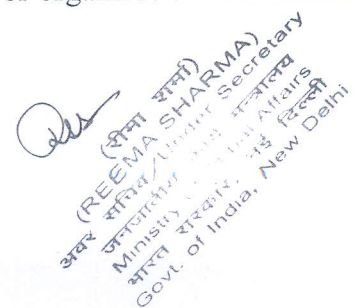 (रीमा शर्मा)
(REEMA SHARMA)
अवर सचिव/Under Secretary
मन्त्रालय
Ministry Affairs
भारत सरकार, नई दिल्ली
Govt. of India, New Delhi